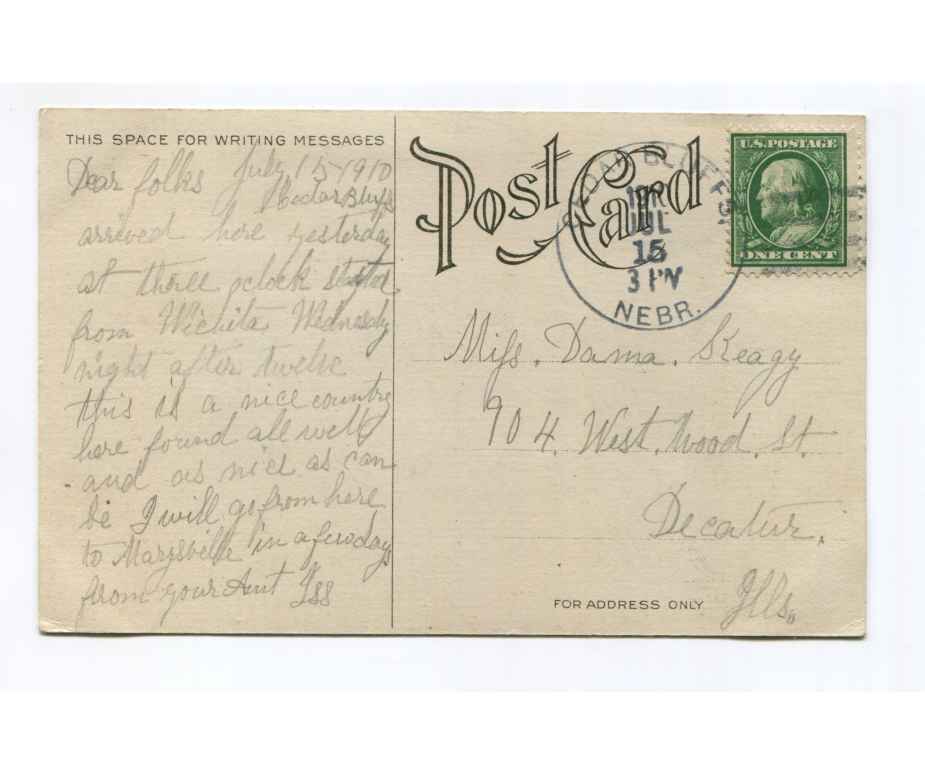 THIS SPACE FOR WRITING MESSAGES
Dear folks July 15-1910
Cedar Bluffs
arrived here yesterday
at three oclock
from Wichita Wednesday
night after twelve
this is a nice country
here found all well
and as nice as can
be I will go from here
to Marysville in a few days
from your Aunt Iss
Post Card
CEDAR BLUFFS
JUL
15
3 PM
NEBR.
U.S. POSTAGE
ONE CENT
Miss. Dama. Keagy
904. West. Wood. St.
Decatur.
Ills.
FOR ADDRESS ONLY